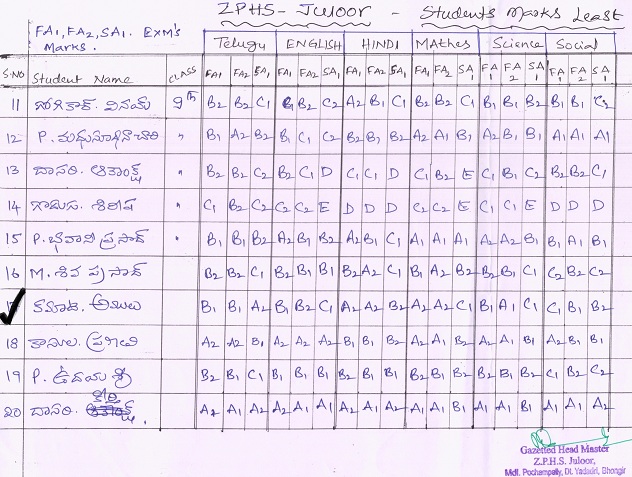 ZPHS- Juloor - Students Marks Least
FA1, FA2, SA1. EXM's
Marks.
Telugu ENGLISH HINDI MATHes Science Social
S.NO Student Name CLASS FA1 FA2 SA1 FA1 FA2 SA1 FA1 FA2 SA1 FA1 FA2 SA1 FA1 FA2 SA1 FA1 FA2 SA1
11 వినయ్ 9th B2 B2 C1 B1 B2 C2 A2 B1 C1 B2 B2 C1 B1 B1 B2 B1 B1 C2
12 P. మధుసూధనాచారి " B1 A2 B2 B1 C1 C2 B2 B1 B2 A2 A1 B1 A2 B1 B1 A1 A1 A1
13 దాసరి. " B2 B2 C2 B2 C1 D C1 C1 D C1 B2 E C1 B1 C2 B2 B2 C1
14 శిరీష " C1 B2 C2 C2 C2 E D D D C2 C2 E C1 C1 E D D D
15 P. భవాని ప్రసాద్ " B1 B1 B2 A2 B1 B2 A2 B1 C1 A1 A1 A1 A2 A2 B1 B1 A1 B1
16 M. శివ ప్రసాద్ B2 B2 C1 B2 B1 B1 B2 A2 C1 B1 A2 B2 B2 B2 C1 C2 B2 C2
17 కమాటి. అములు B1 B1 A2 B1 B2 C1 A2 A2 B2 A2 A2 C1 B1 A1 C1 C1 B2 B2
18 A2 A2 B1 A2 A2 A2 B1 B1 B2 A2 A1 B2 A2 A1 B1 A2 B1 B1
19 P. ఉదయ శ్రీ B2 B1 C1 B1 B1 B1 B2 B1 B1 B2 B1 B2 B2 B1 B2 C1 B2 C2
20 దాసరి. కీర్తి A2 A1 A2 A2 A1 A1 A2 A1 A2 A1 A1 B1 A1 A1 B2 A1 A1 A2
Gazetted Head Master
Z.P.H.S. Juloor,
Mdl. Pochampally, Dt. Yadadri, Bhongir